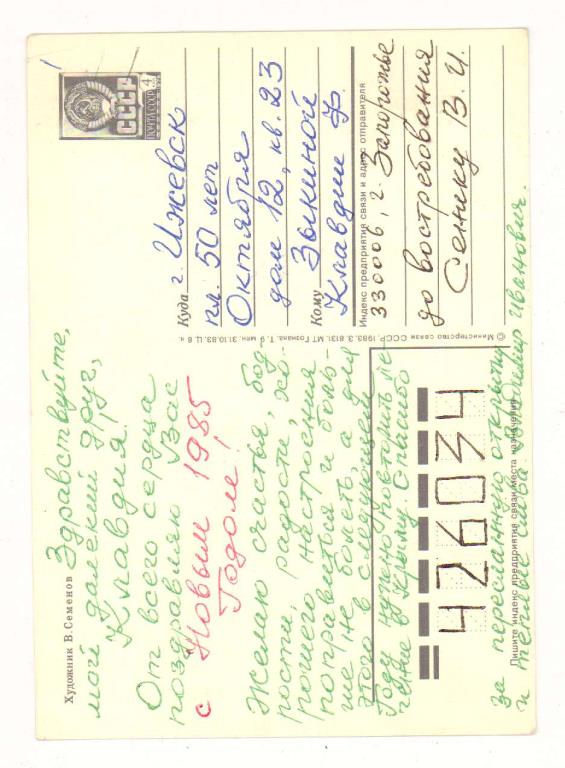 Художник В.Семенов
Здравствуйте,
мой далекий друг,
Клавдия!
От всего сердца
поздравляю Вас
с Новым 1985
Годом!
Желаю счастья, бод
рости, радости, хо-
рошего настроения
поправиться и боль-
ше не болеть, а для
этого в следующем
году нужно повтомить ле-
чение в Крыму. Спасибо
за пересланную открытку
и теплые слова Владимир Иванович.
СССР
ПОЧТА СССР
4
Куда г. Ижевск
пл. 50 лет
Октября
дом 12, кв. 23
Кому Зыкиной
Клавдии Ф.
Индекс предприятия связи и адрес отправителя
330006, г. Запорожье
до востребования
Сенику В. И.
© Министерство связи СССР. 1983. З. 8131. МТ Гознака. Т. 9 млн. 31.10.83. Ц. 8 к.
426034
Пишите индекс предприятия связи места назначения